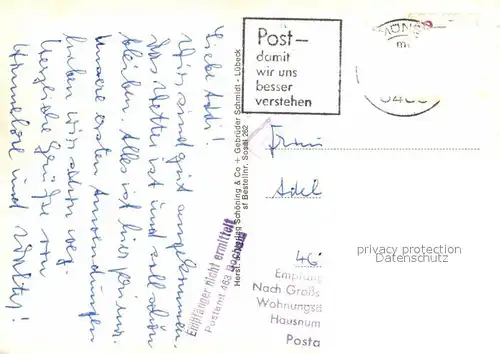 Liebe Addi!
Wir sind gut angekommen.
Das Wetter ist und soll schön
bleiben. Alles ist hier prima.
Unsere ersten Anwendungen
haben wir schon weg.
Herzliche Grüße von
Hannelore und Walter!
Post–
damit
wir uns
besser
verstehen
Herst. Schöning & Co + Gebrüder Schmidt - Lübeck
Bestellnr. Soest 262
Empfänger nicht ermittelt
Postamt 463 Bochum
Frau
Adel
46
privacy protection
Datenschutz
Empfäng
Nach Groß
Wohnungs
Hausnum
Posta